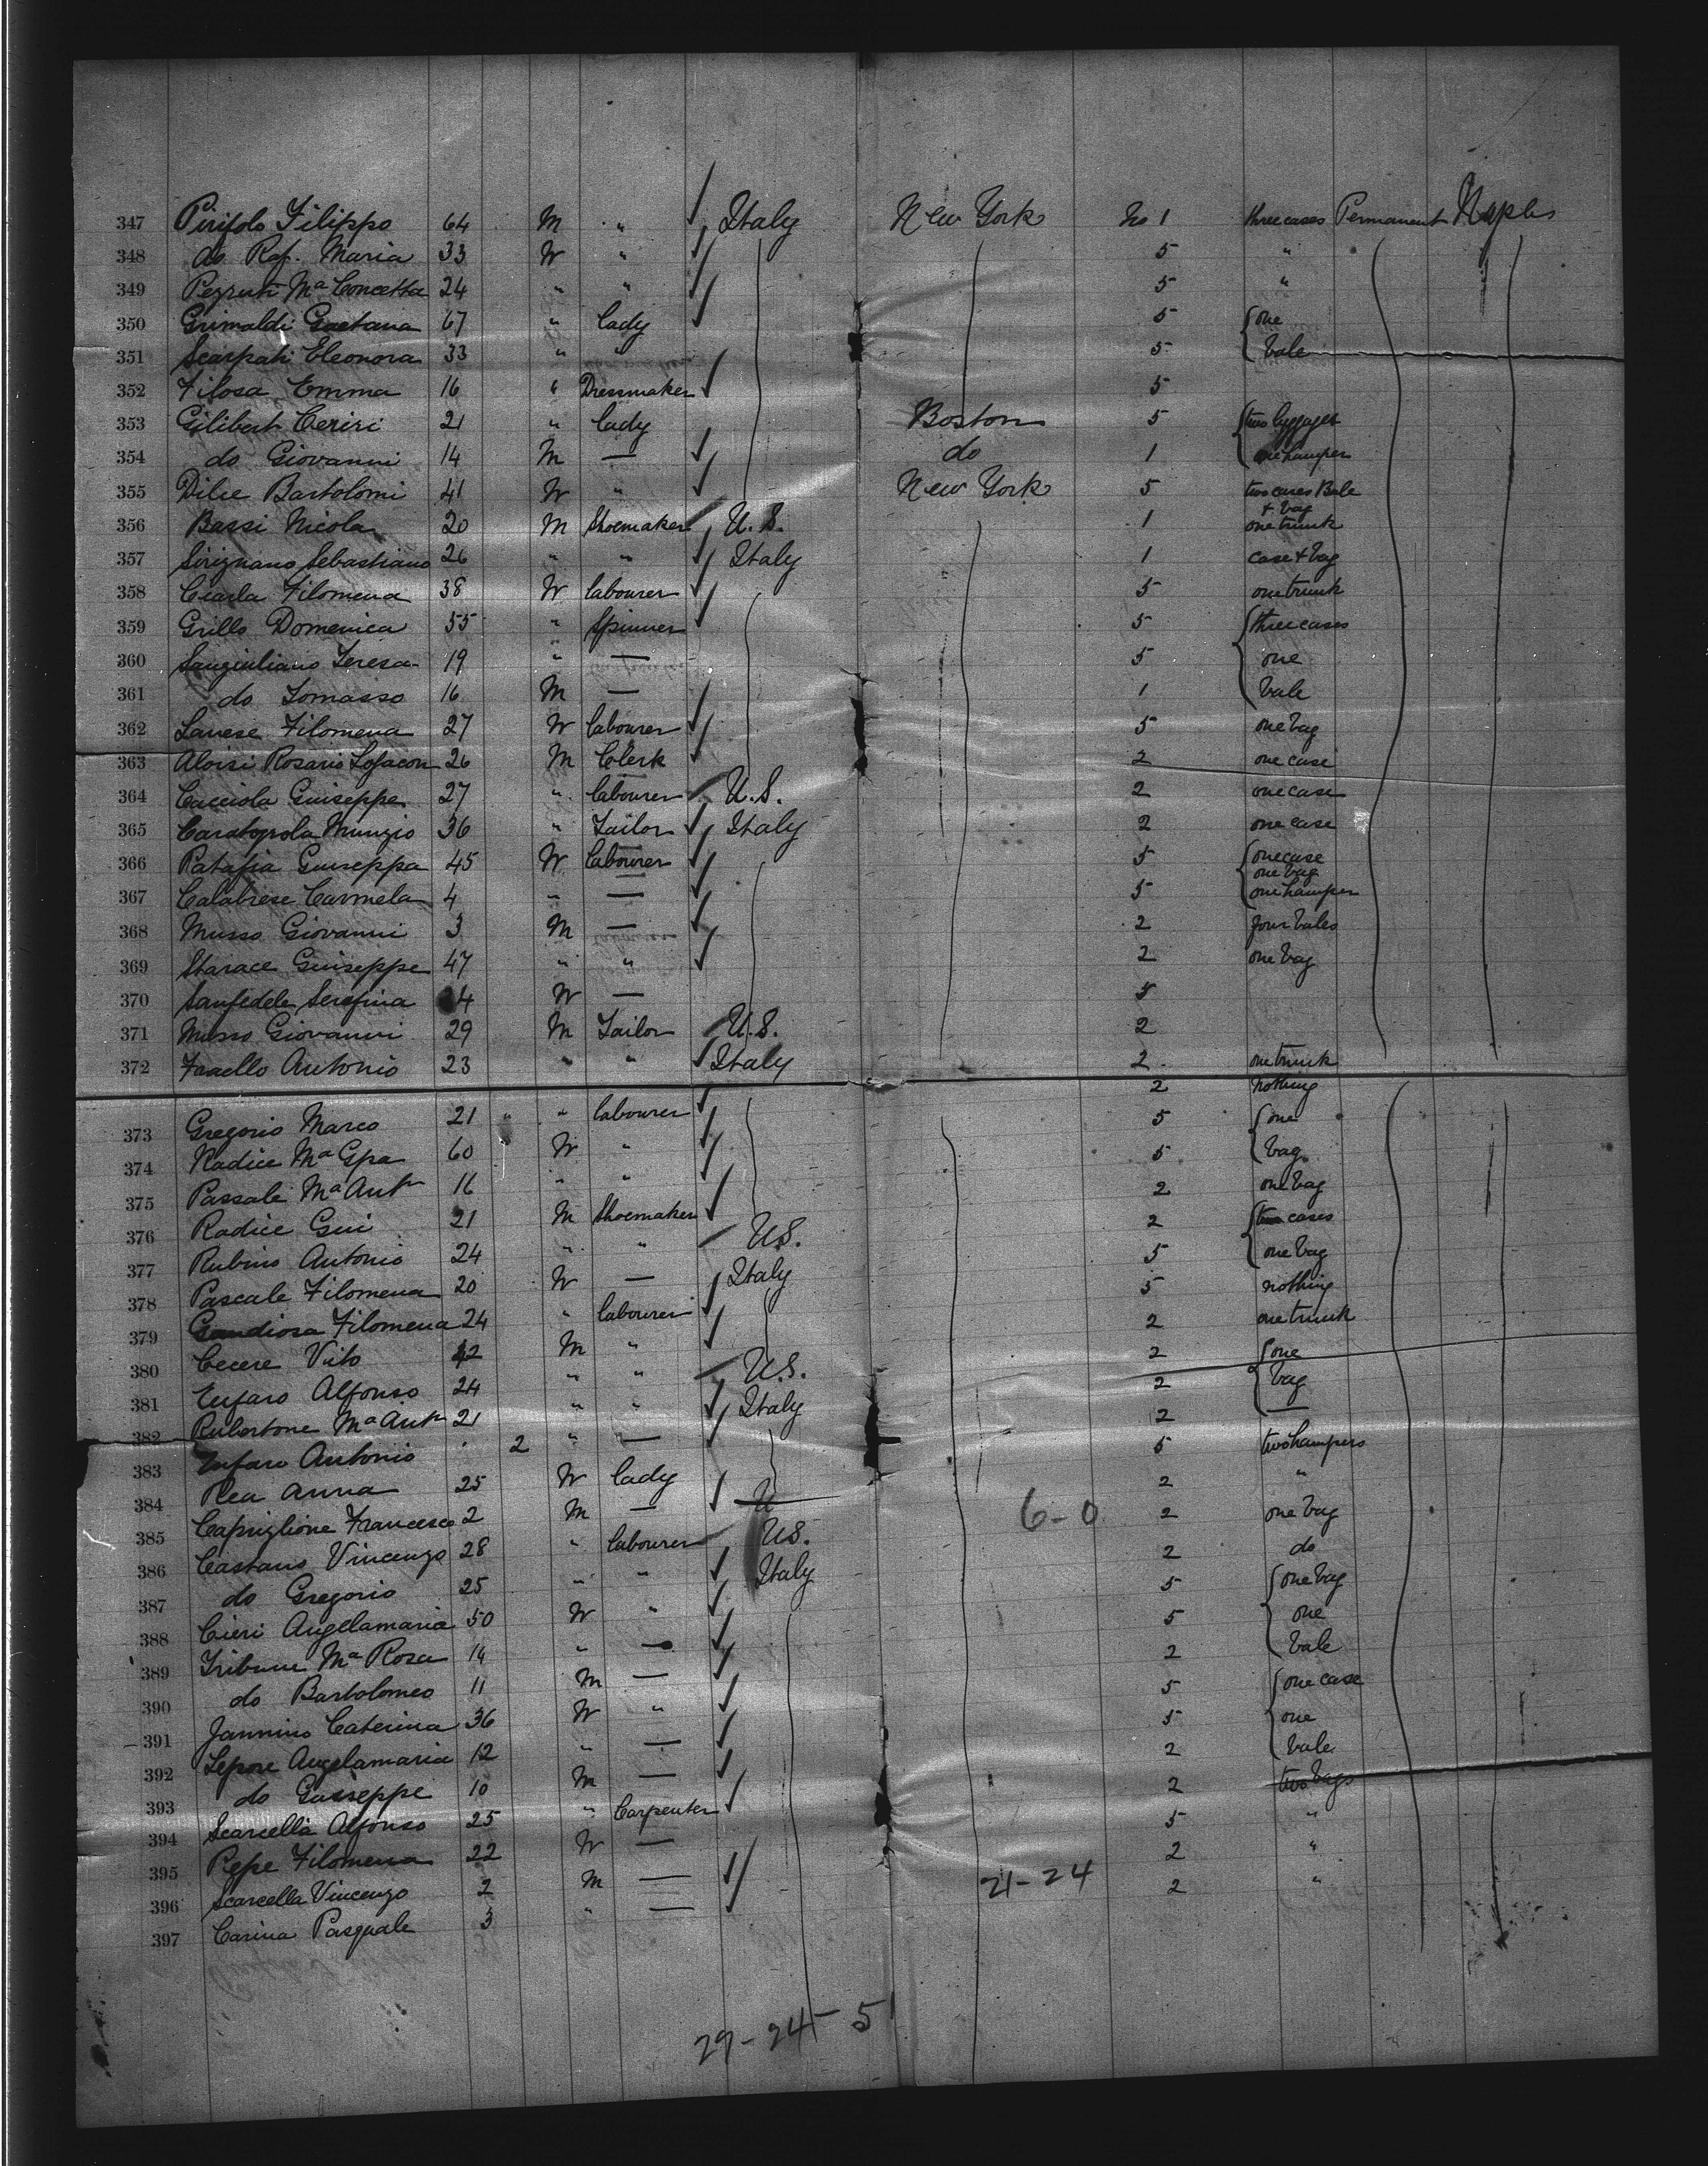 347 Pirifolo Filippo 64 M " Italy New York No 1 three cases Permanent Naples
348 do Raf. Maria 33 W " 5 "
349 Mª Concetta 24 " " 5 "
350 Grimaldi Gaetana 67 " Lady 5 one
351 Scarpati Eleonora 33 " " 5 bale
352 Filosa Emma 16 " Dressmaker 5
353 Gilibert 21 " Lady Boston 5 two luggages
354 do Giovanni 14 M — do 1 one hamper
355 Bartolomi 41 W " New York 5 two cases Bale + bag
356 Bassi Nicola 20 M Shoemaker U.S. 1 one trunk
357 Sirignano Sebastiano 26 " " Italy 1 case + bag
358 Ciarla Filomena 38 W Labourer 5 one trunk
359 Grillo Domenica 55 " Spinner 5 three cases
360 Sangiuliano Teresa 19 " — 5 one
361 do Tomasso 16 M — 1 bale
362 Lanese Filomena 27 W Labourer 5 one bag
363 Aloisi Rosario 26 M Clerk 2 one case
364 Cacciola Guiseppe 27 " Labourer U.S. 2 one case
365 Munzio 36 " Tailor Italy 2 one case
366 Patafia Guiseppa 45 W Labourer 5 one case one bag
367 Calabrese Carmela 4 " — 5 one hamper
368 Musso Giovanni 3 M — 2 four bales
369 Starace Guiseppe 47 " " 2 one bag
370 Sanfedele Serafina 4 W — 5
371 Musso Giovanni 29 M Tailor U.S. 2
372 Antonio 23 " " Italy 2 one trunk
2 nothing
373 Gregorio Marco 21 " " Labourer 5 one
374 Radice Mª Gpa 60 W " 5 bag
375 Passale Mª Antª 16 " " 2 one bag
376 Radice Gui 21 M Shoemaker 2 cases
377 Rubino Antonio 24 " " U.S. 5 one bag
378 Pascale Filomena 20 W — Italy 5 nothing
379 Gaudiosa Filomena 24 " Labourer 2 one trunk
380 Cecere Vito 42 M " 2 one
381 Eufaro Alfonso 24 " " U.S. 2 bag
382 Rubertone Mª Antª 21 " " Italy 2 —
383 Eufaro Antonio 2 " — 5 two hampers
384 Rea Anna 25 W Lady 2 "
385 Capriglione Francesco 2 M — U 6-0 2 one bag
386 Castano Vincenzo 28 " Labourer U.S. 2 do
387 do Gregorio 25 " " Italy 5 one bag
388 Cieri Angelamaria 50 W " 5 one
389 Mª Rosa 14 " — 2 bale
390 do Bartolomeo 11 M — 5 one case
391 Jannino Caterina 36 W " 5 one
392 Lepore Angelamaria 12 " — 2 bale
393 do Guiseppe 10 M — 2 two bags
394 Scarcella Alfonso 25 " Carpenter 5 "
395 Pepe Filomena 22 W — 2 "
396 Scarcella Vincenzo 2 M — 21-24 2 "
397 Carina Pasquale 3 " —
29-24-51